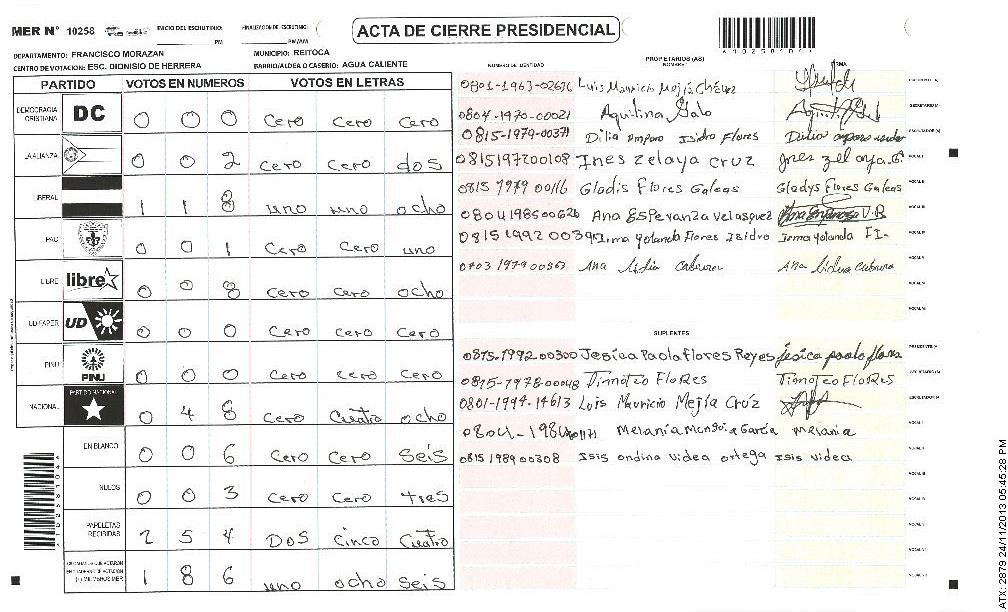 MER N° 10258 INICIO DEL ESCRUTINIO: PM FINALIZACION DEL ESCRUTINIO: PM/AM
ACTA DE CIERRE PRESIDENCIAL
A10258104
DEPARTAMENTO: FRANCISCO MORAZAN MUNICIPIO: REITOCA
CENTRO DE VOTACION: ESC. DIONISIO DE HERRERA BARRIO/ALDEA O CASERIO: AGUA CALIENTE
PARTIDO VOTOS EN NUMEROS VOTOS EN LETRAS
DEMOCRACIA CRISTIANA DC 0 0 0 Cero Cero Cero
LA ALIANZA 0 0 2 Cero Cero dos
LIBERAL 1 1 8 uno uno ocho
PAC 0 0 1 Cero Cero uno
LIBRE libre 0 0 8 Cero Cero ocho
UD FAPER UD 0 0 0 Cero Cero Cero
PINU PINU 0 0 0 Cero Cero Cero
NACIONAL PARTIDO NACIONAL 0 4 8 Cero Cuatro ocho
EN BLANCO 0 0 6 Cero Cero Seis
NULOS 0 0 3 Cero Cero tres
PAPELETAS RECIBIDAS 2 5 4 Dos Cinco Cuatro
1 8 6 uno ocho Seis
PROPIETARIOS (AS)
NUMERO DE IDENTIDAD NOMBRE FIRMA
Luis Mauricio Mejía Chávez
0804-1970-00021 Aquilina Galo
0815-1979-00371 Dilia amparo Isidro Flores Dilia amparo isidro
0815197200108 Ines Zelaya Cruz Ines zelaya. C.
0815 1979 00116 Gladis Flores Galeas Gladys Flores Galeas
0804198500620 Ana Esperanza Velasquez
0815 1992 Irma Yolanda Flores Isidro Irma Yolanda F I-
0703 1979 Ana Lidia Cabrera Ana Lidia Cabrera
SUPLENTES
0815-1992-00300 Jesica Paola Flores Reyes jesica paola flores
0815-1978-00048 Timoteo FloRes Timoteo FloRes
0801-1994-14613 Luis Mauricio Mejía Cruz
Melania García melania
0815 1989 00308 Isis ondina videa ortega Isis videa
ATX: 2879 24/11/2013 05:45:28 PM